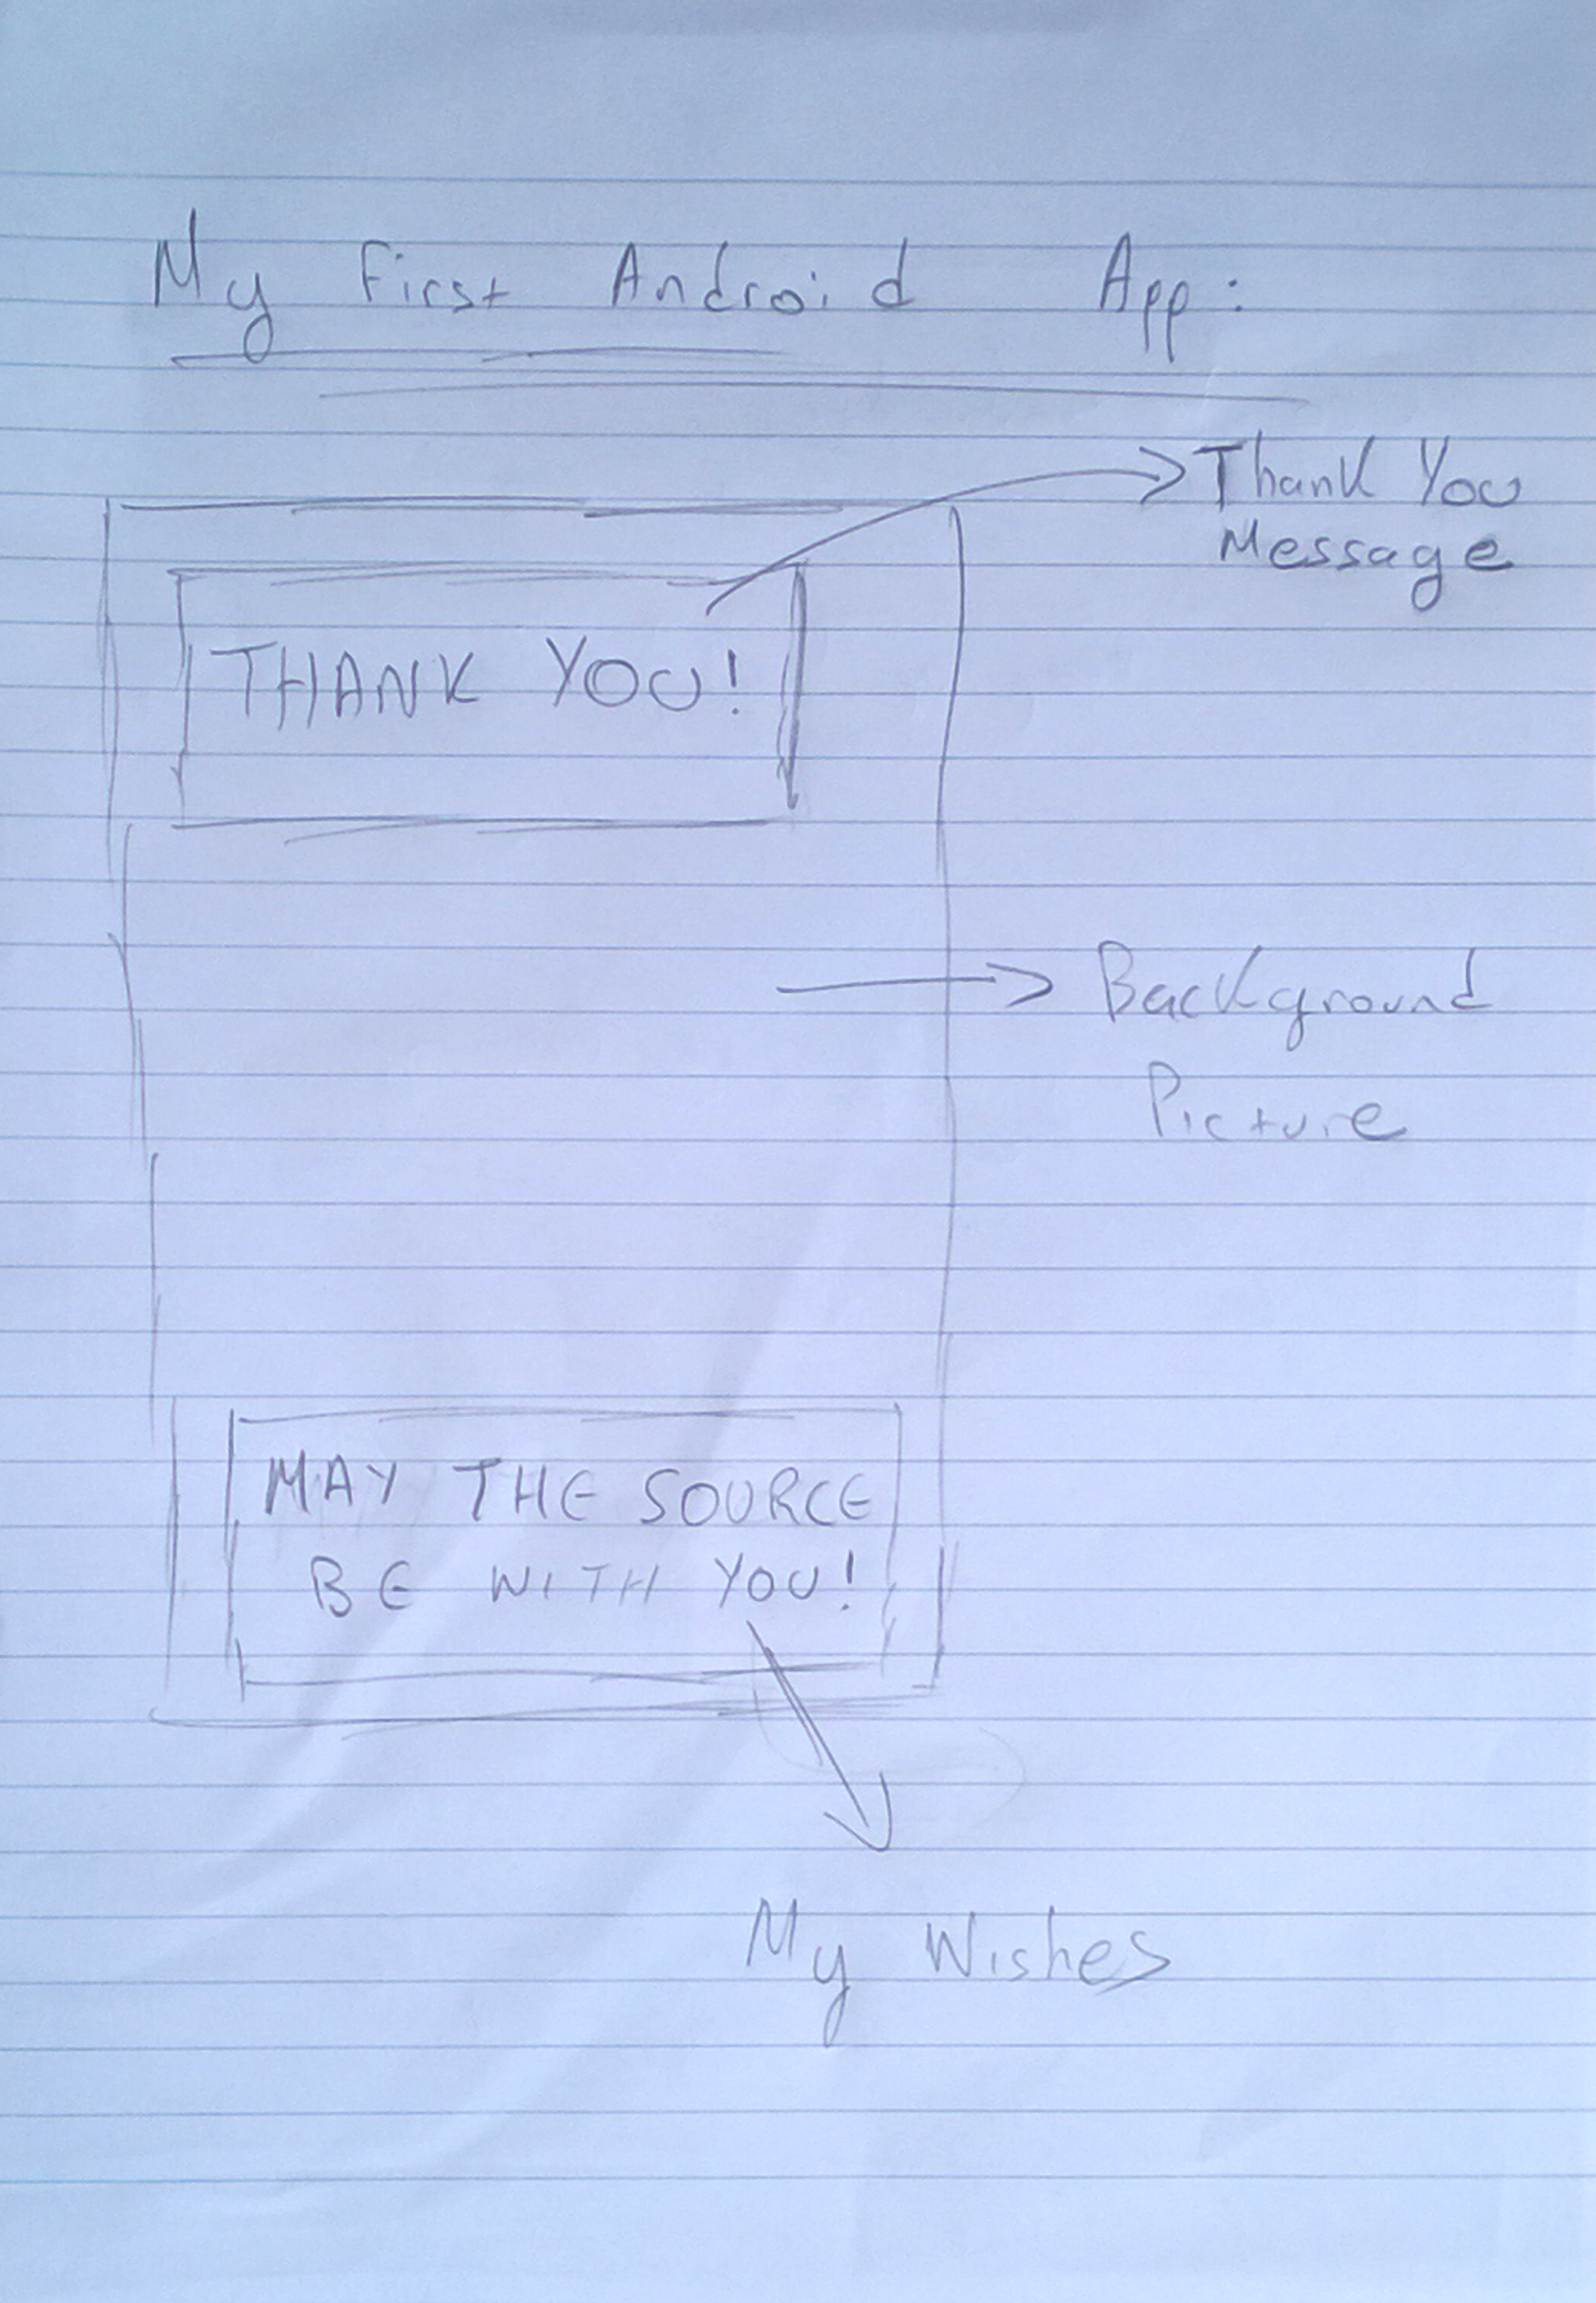 My First Android App:
Thank You
Message
THANK YOU!
Background
Picture
MAY THE SOURCE
BE WITH YOU!
My Wishes